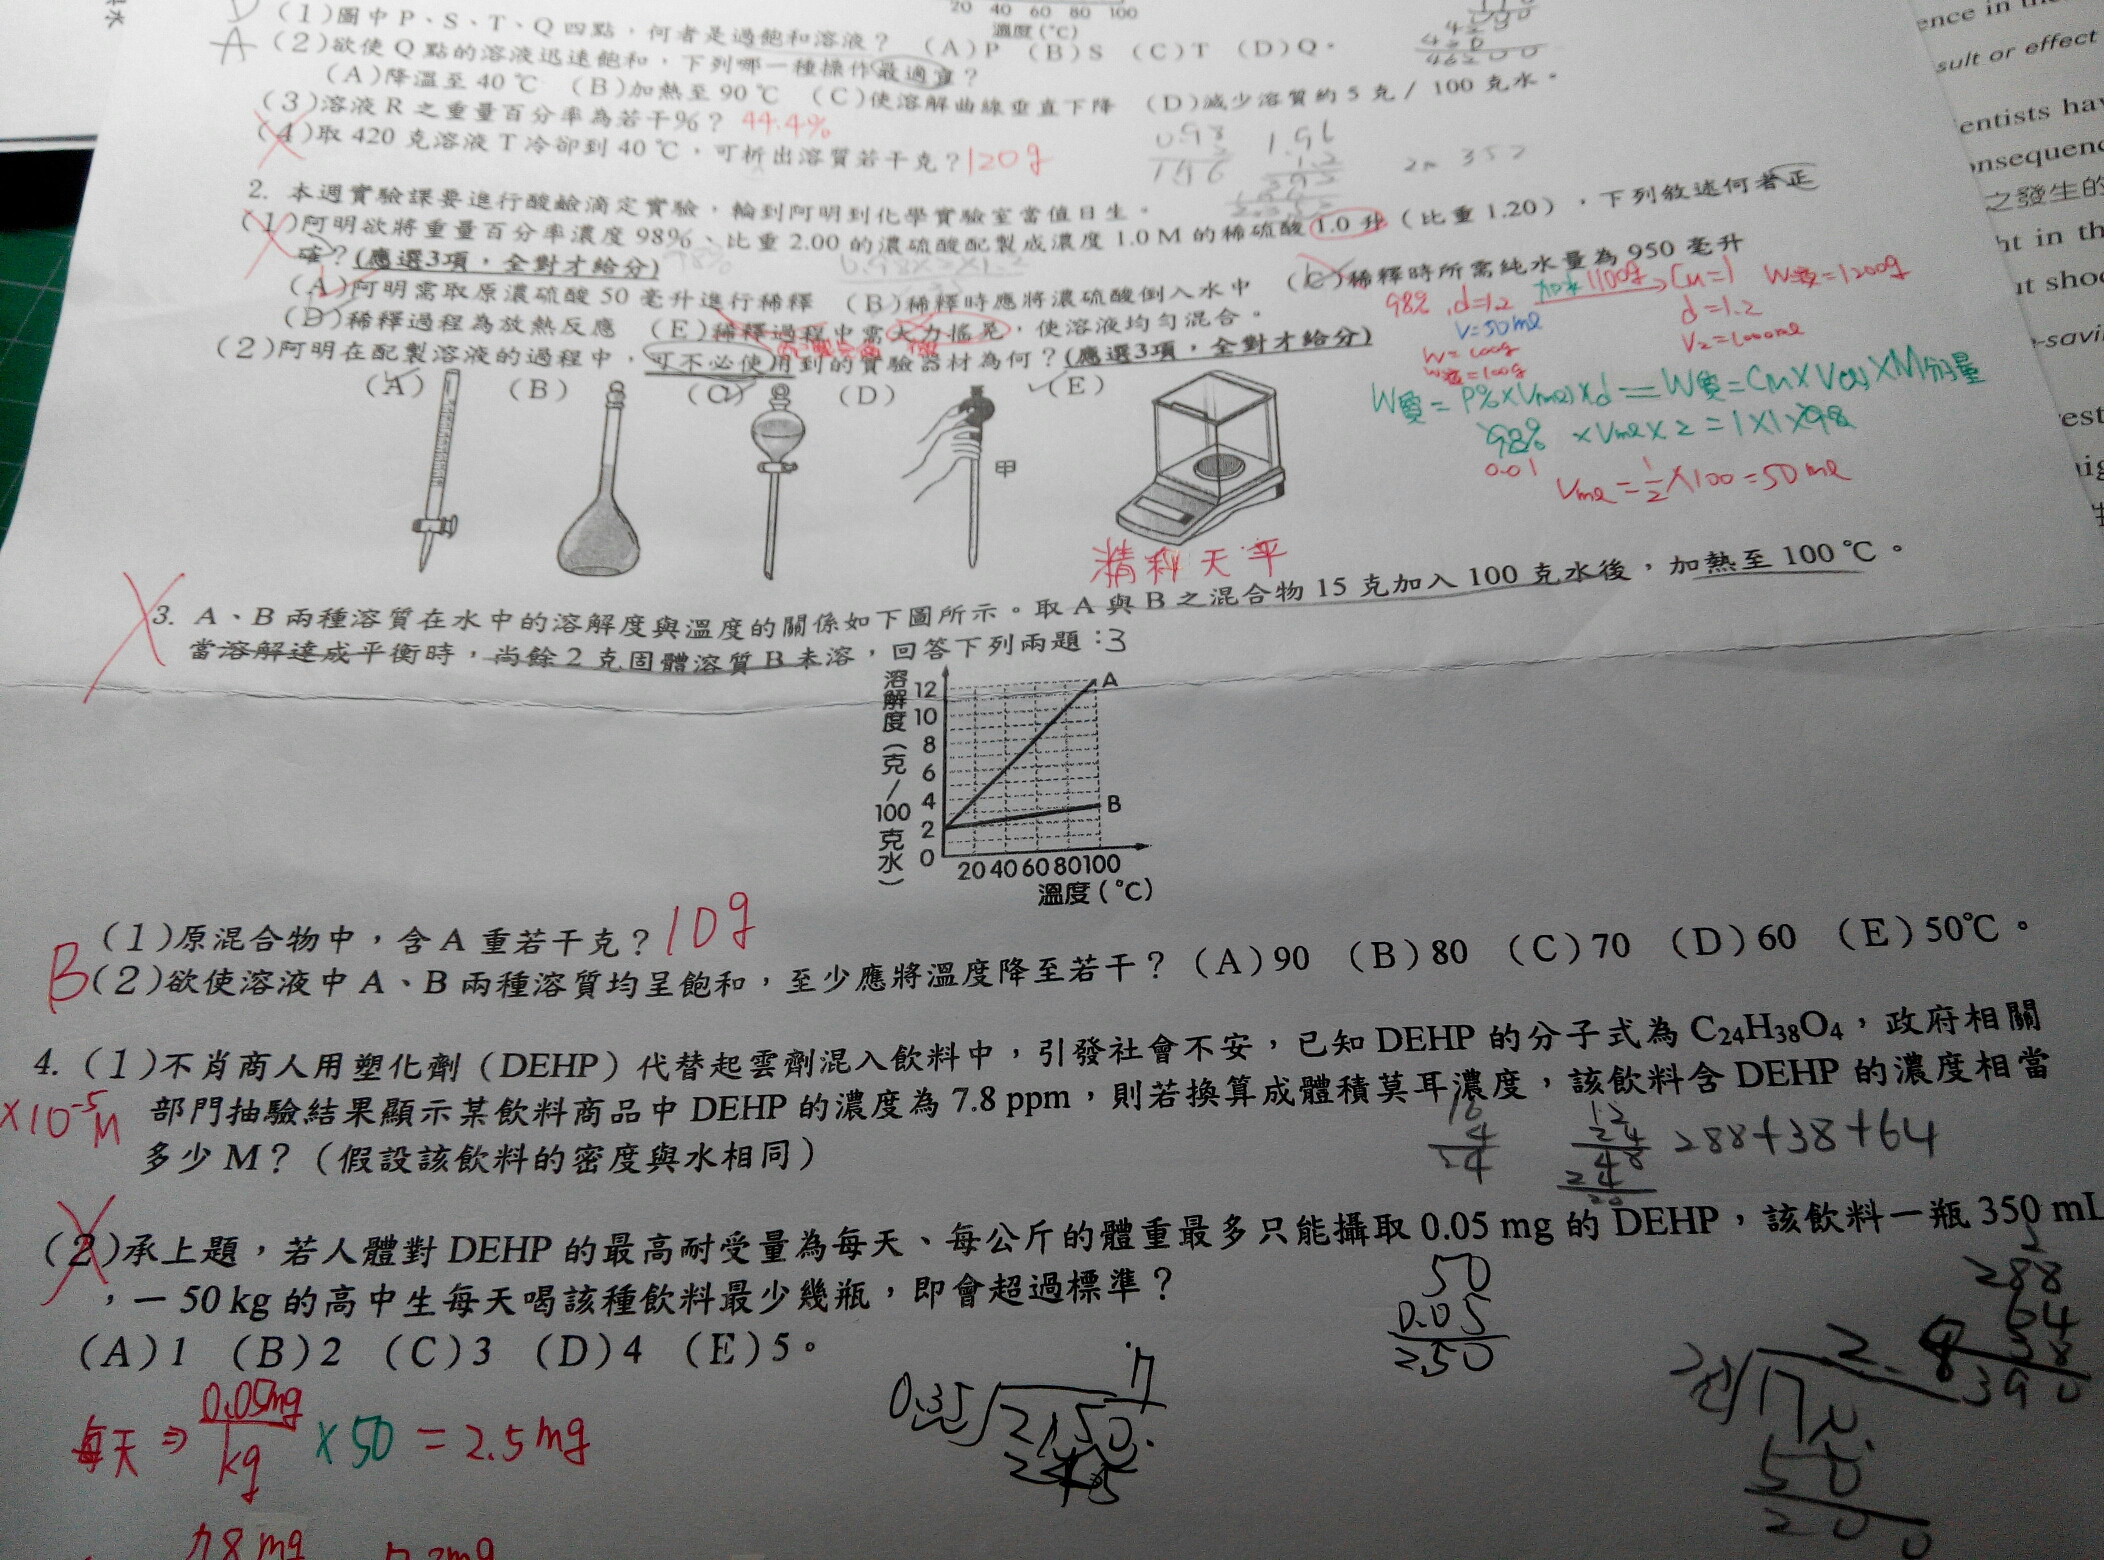 20 40 60 80 100
溫度(℃)
(1)圖中P、S、T、Q四點,何者是過飽和溶液? (A)P (B)S (C)T (D)Q。
A (2)欲使Q點的溶液迅速飽和,下列哪一種操作最適宜?
(A)降溫至40℃ (B)加熱至90℃ (C)使溶解曲線垂直下降 (D)減少溶質約5克/100克水。
(3)溶液R之重量百分率為若干%? 44.4%
(4)取420克溶液T冷卻到40℃,可析出溶質若干克? 120g
2. 本週實驗課要進行酸鹼滴定實驗,輪到阿明到化學實驗室當值日生。
(1)阿明欲將重量百分率濃度98%、比重2.00的濃硫酸配製成濃度1.0 M的稀硫酸1.0升(比重1.20),下列敘述何者正
確?(應選3項,全對才給分)
(A)阿明需取原濃硫酸50毫升進行稀釋 (B)稀釋時應將濃硫酸倒入水中 (C)稀釋時所需純水量為950毫升
(D)稀釋過程為放熱反應 (E)稀釋過程中需大力搖晃,使溶液均勻混合。
98% , d=1.2 加水1100g CM=1 W液=1200g
V=50ml d=1.2
W=100g V2=1000ml
W液=100g
(2)阿明在配製溶液的過程中,可不必使用到的實驗器材為何?(應選3項,全對才給分)
(A) (B) (C) (D) (E)
甲
W質=P%×V(ml)×d=W質=CM×V(l)×M分子量
98%×Vml×2=1×1×98
0.01
Vml=1/2×100=50ml
精秤天平
3. A、B兩種溶質在水中的溶解度與溫度的關係如下圖所示。取A與B之混合物15克加入100克水後,加熱至100℃。
當溶解達成平衡時,尚餘2克固體溶質B未溶,回答下列兩題:3
溶解度(克/100克水)
12
10
8
6
4
2
0
A
B
20 40 60 80 100
溫度(℃)
(1)原混合物中,含A重若干克? 10g
B (2)欲使溶液中A、B兩種溶質均呈飽和,至少應將溫度降至若干? (A)90 (B)80 (C)70 (D)60 (E)50℃。
4. (1)不肖商人用塑化劑(DEHP)代替起雲劑混入飲料中,引發社會不安,已知DEHP的分子式為C24H38O4,政府相關
×10⁻⁵M 部門抽驗結果顯示某飲料商品中DEHP的濃度為7.8 ppm,則若換算成體積莫耳濃度,該飲料含DEHP的濃度相當
多少M?(假設該飲料的密度與水相同)
288+38+64
(2)承上題,若人體對DEHP的最高耐受量為每天、每公斤的體重最多只能攝取0.05 mg的DEHP,該飲料一瓶350 mL
,一50 kg的高中生每天喝該種飲料最少幾瓶,即會超過標準?
(A)1 (B)2 (C)3 (D)4 (E)5。
50
0.05
2.50
288
64
38
390
每天⇒0.05mg/kg×50=2.5mg
ence in
sult or effect
entists hav
onsequenc
之發生的
ht in th
ut shou
e-savi